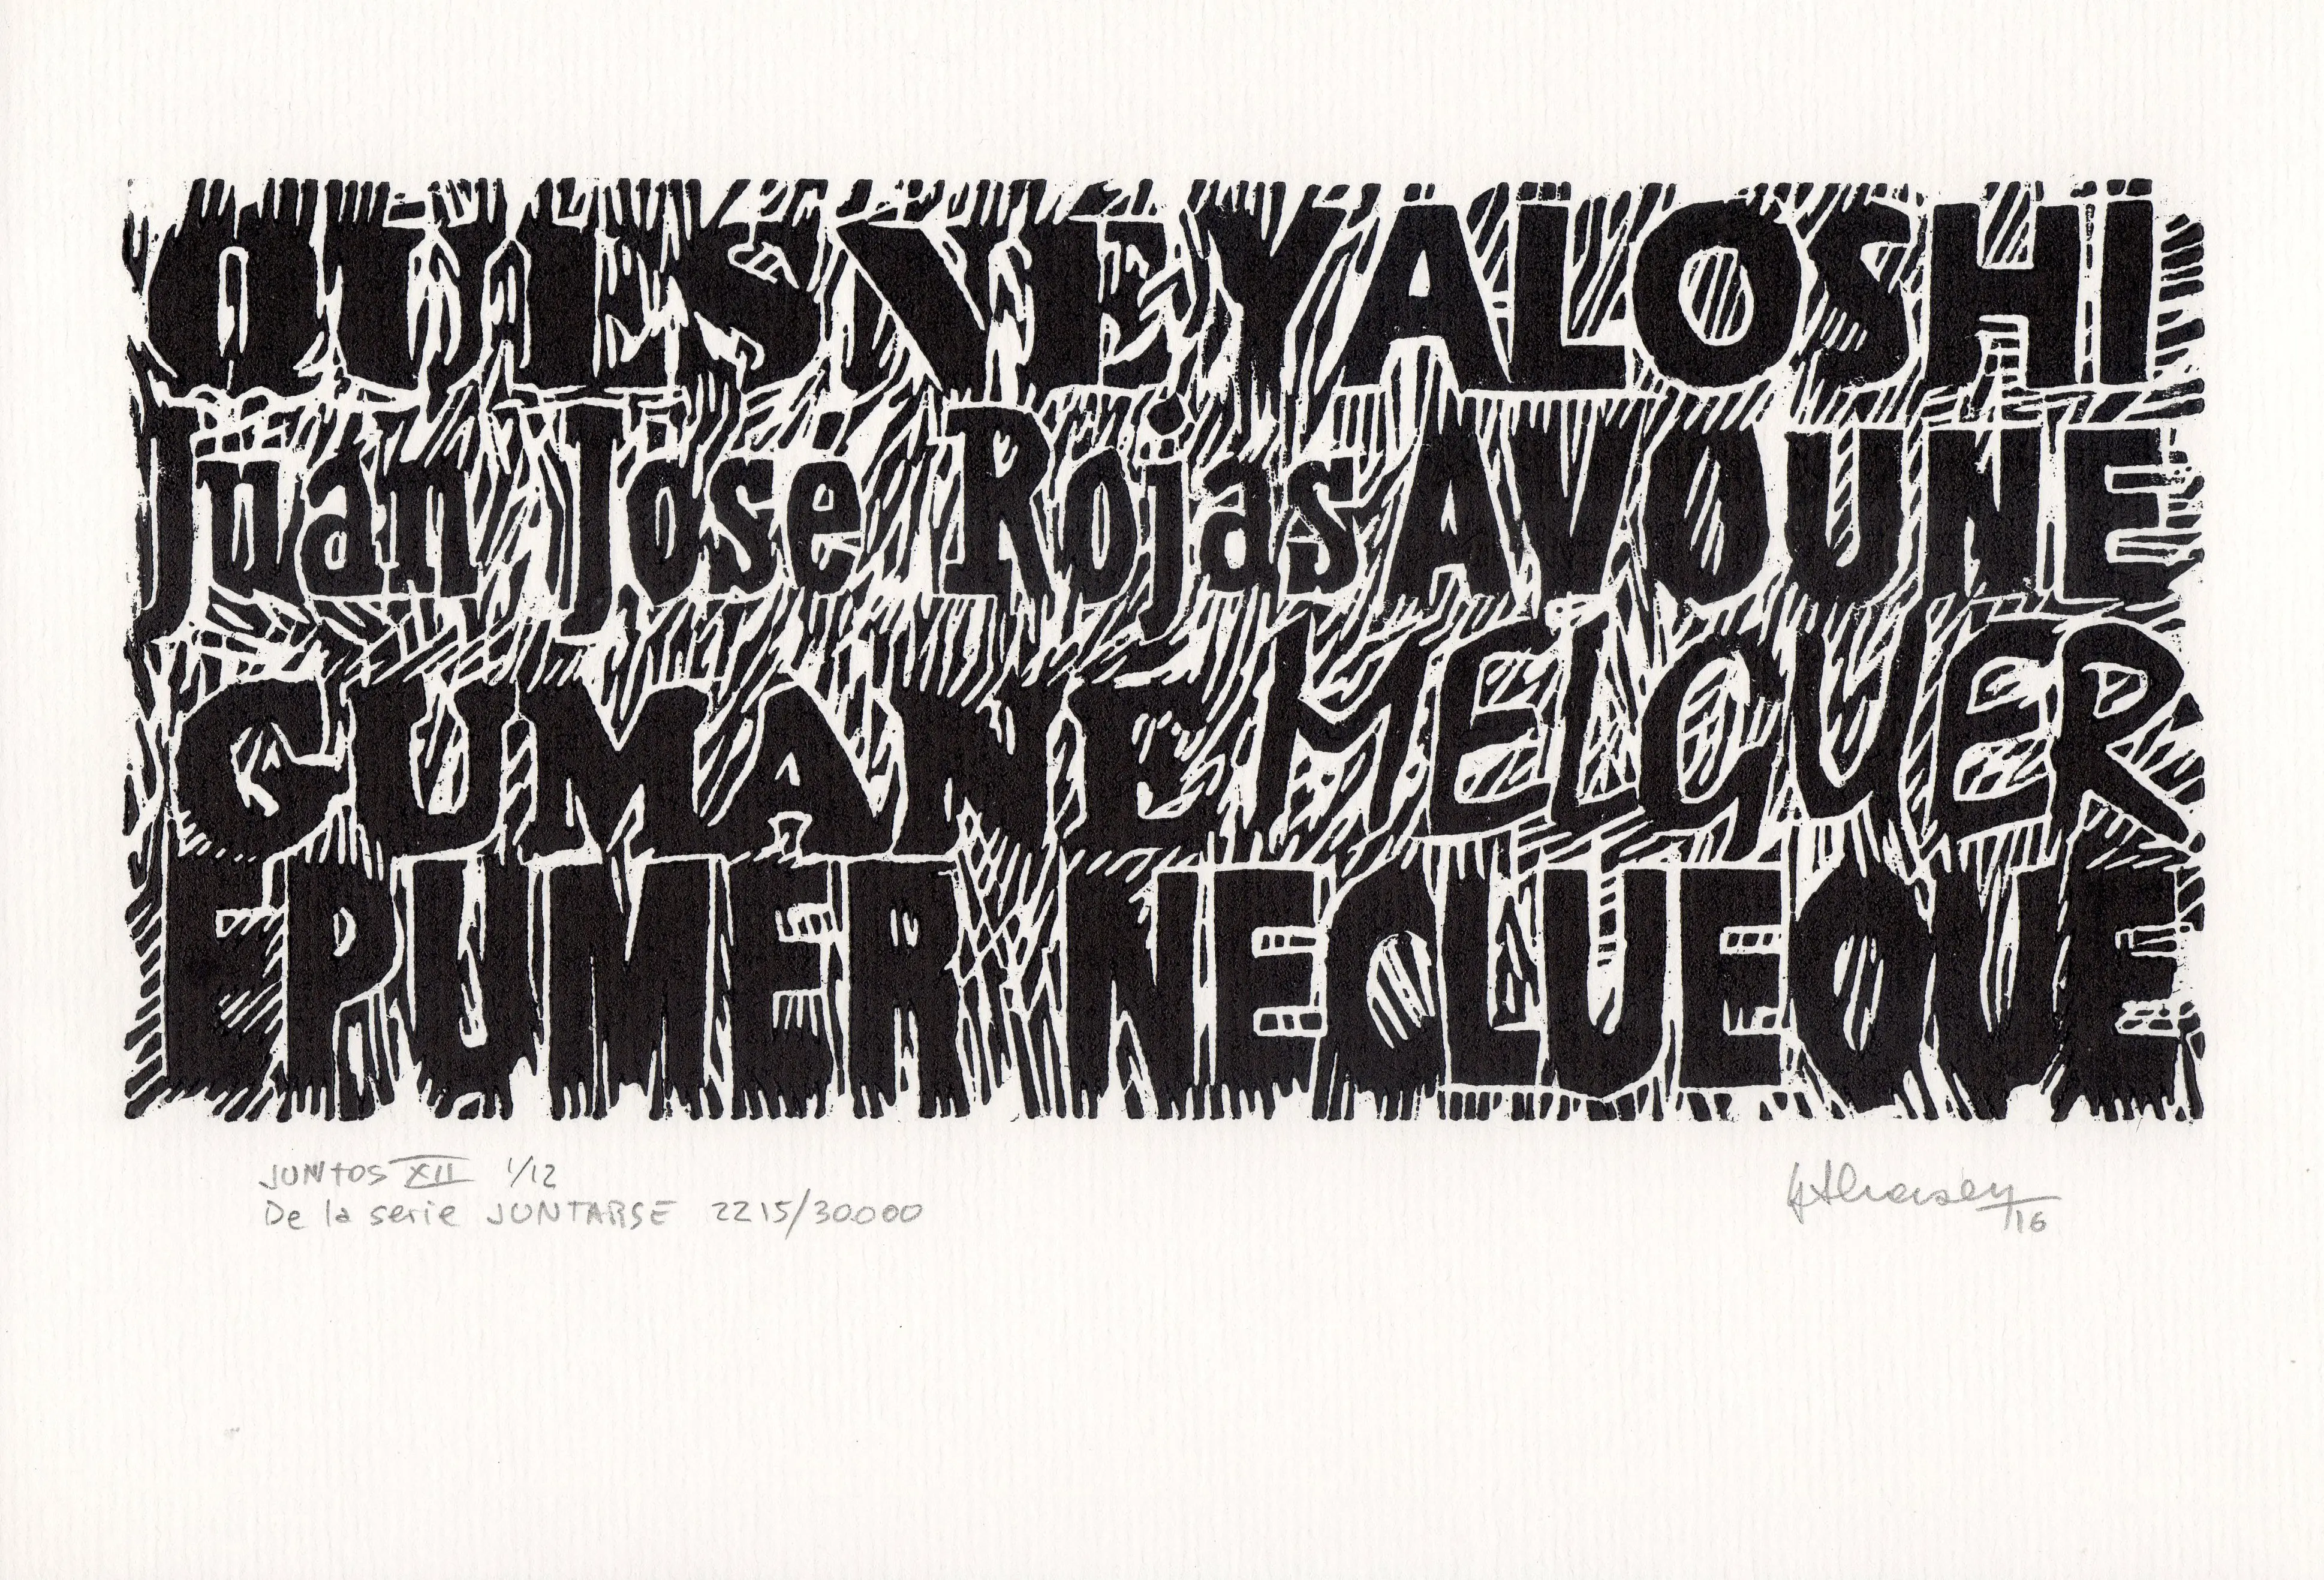 YÄLOSHÏ
Juan José Rojas AVOUNE
GUMANE MELQUER
EPUMER NECLUEQUE
JUNTOS XII 1/12
De la serie JUNTARSE 2215/30000
/16